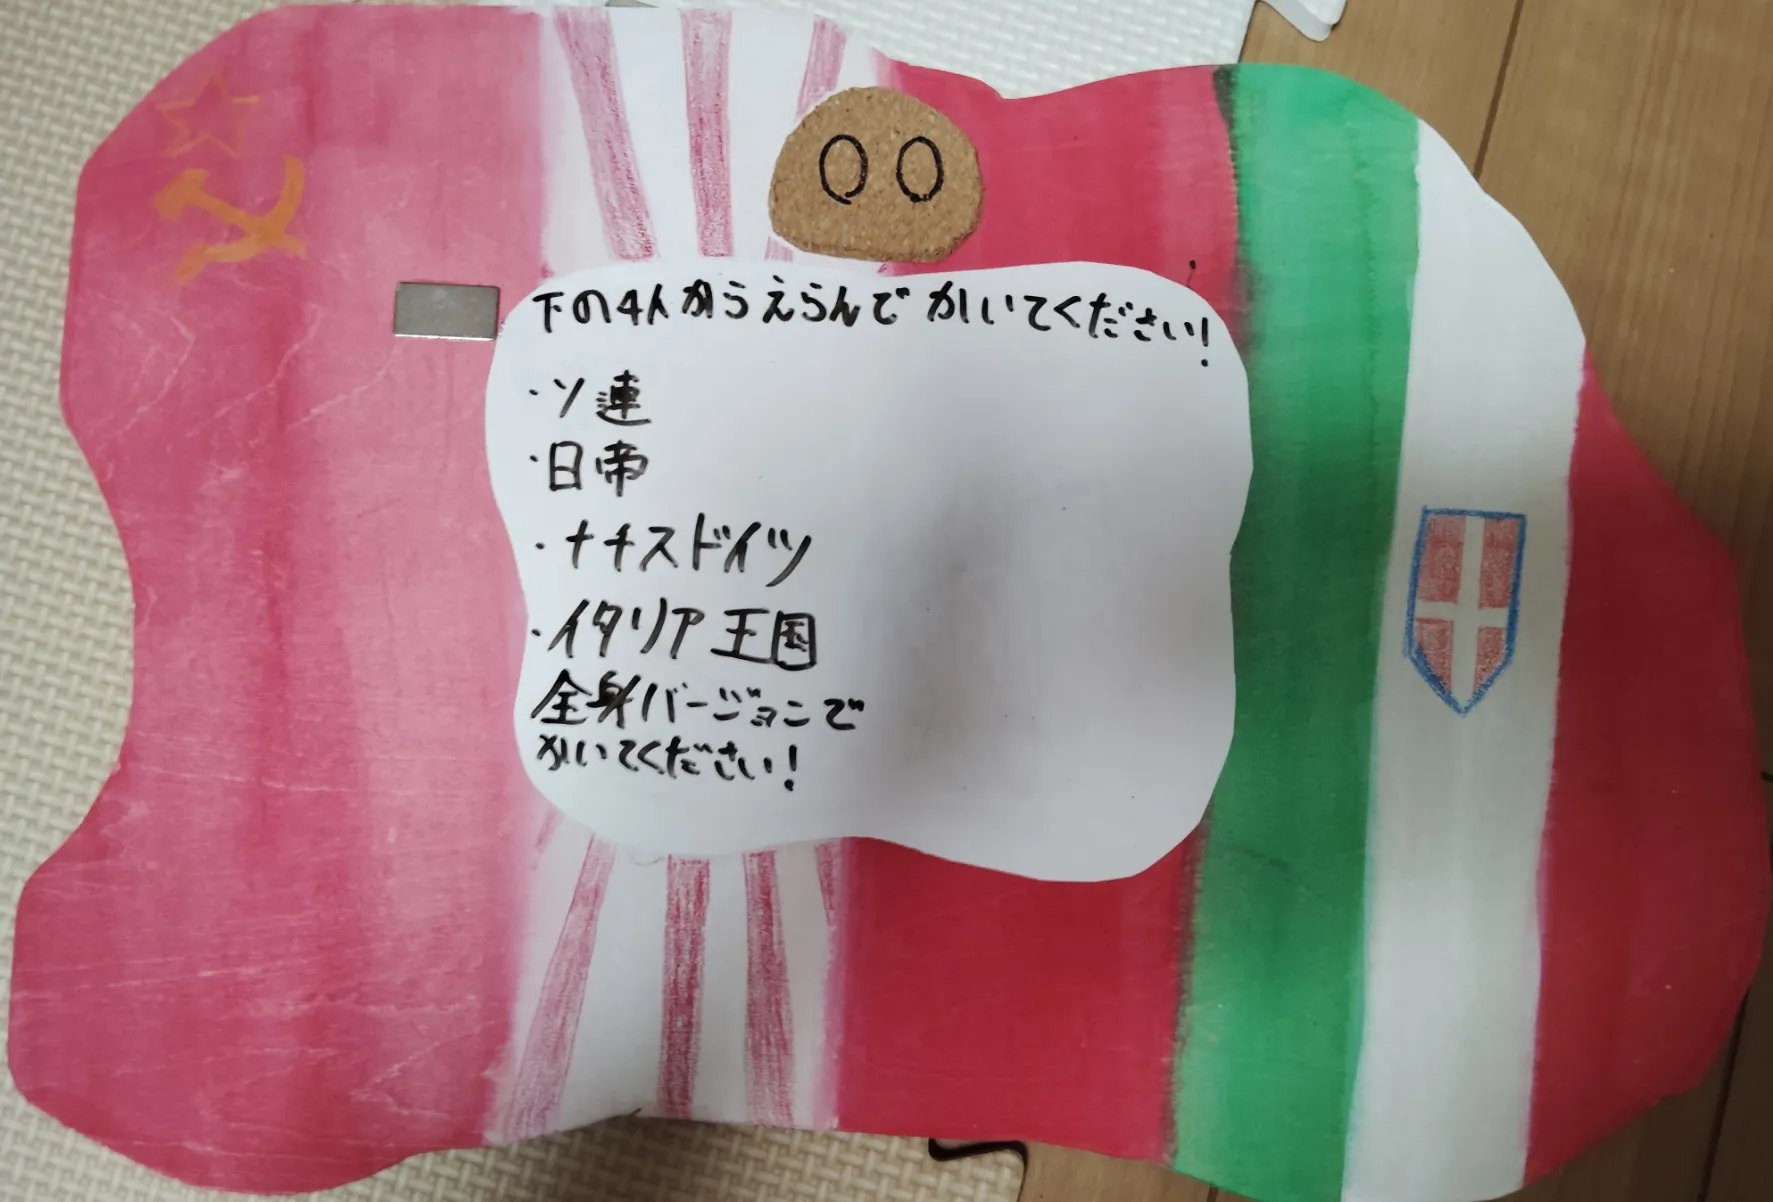 下の4人からえらんでかいてください!
・ソ連
・日帝
・ナチスドイツ
・イタリア王国
全身バージョンで
かいてください!